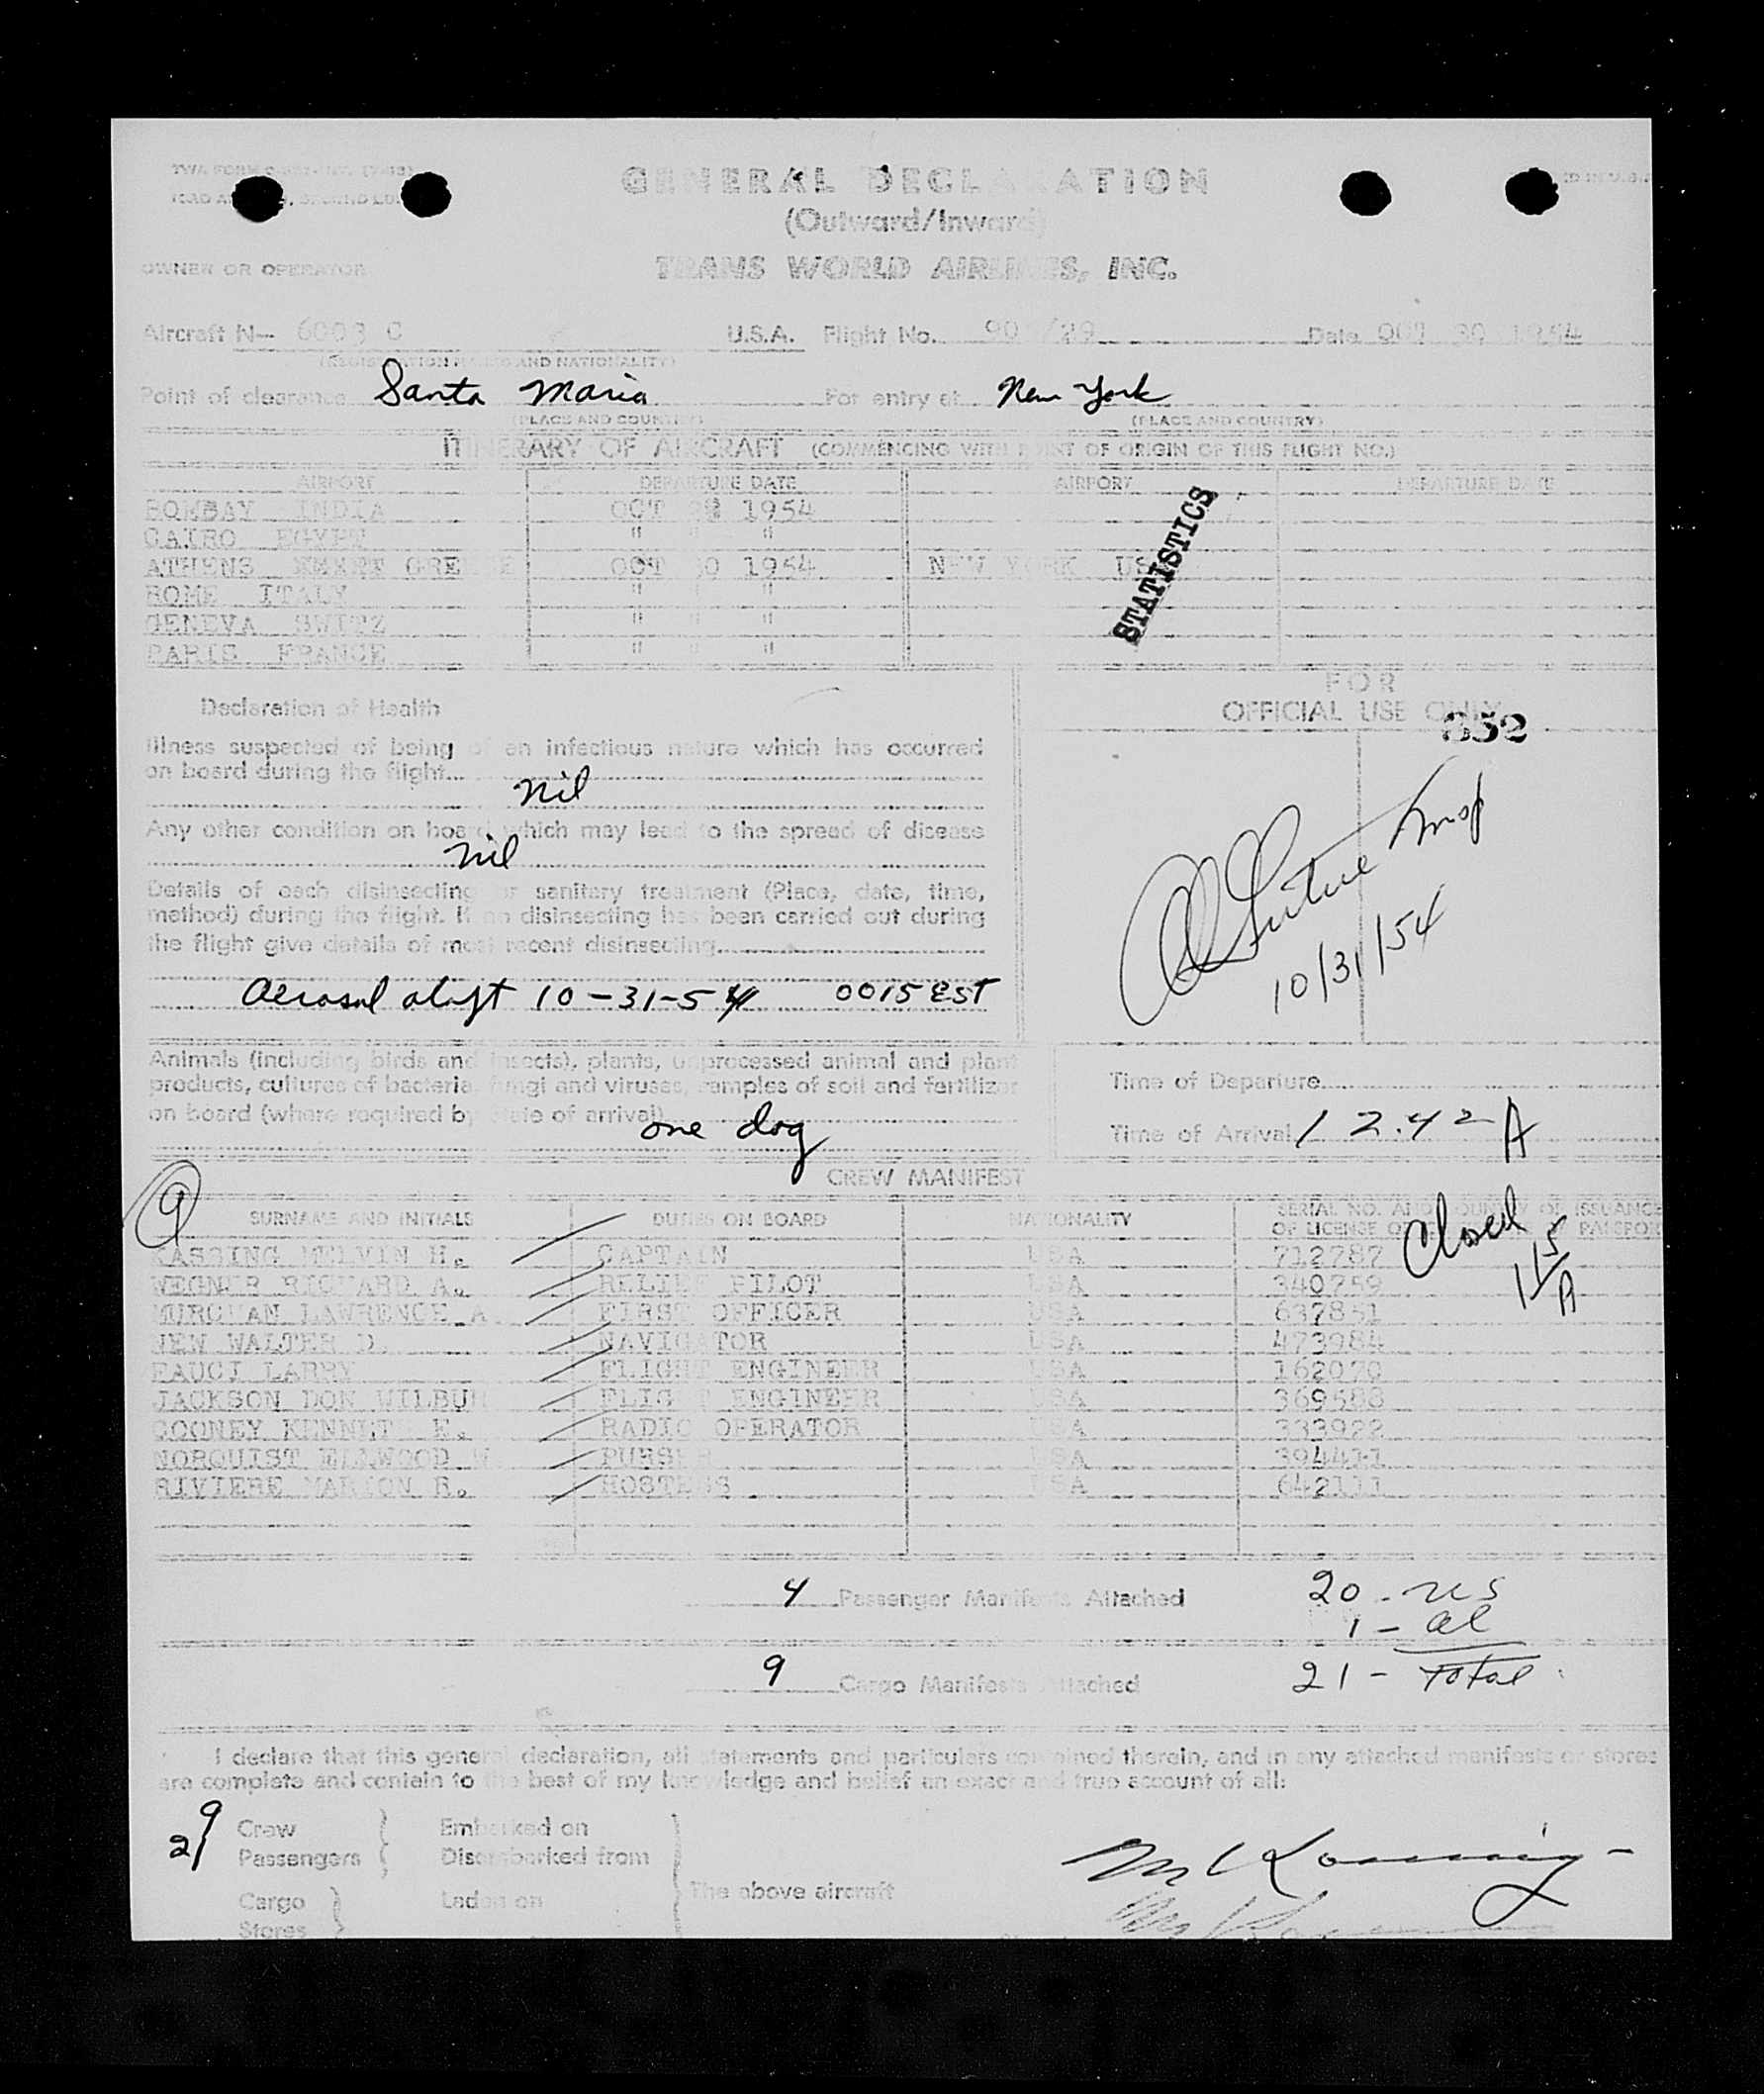 GENERAL DECLARATION
(Outward/Inward)
OWNER OR OPERATOR TRANS WORLD AIRLINES, INC.
Aircraft N— 6003 C U.S.A. Flight No. 90 /29 Date OCT 30 1954
(REGISTRATION MARKS AND NATIONALITY)
Point of clearance Santa Maria For entry at New York
(PLACE AND COUNTRY) (PLACE AND COUNTRY)
ITINERARY OF AIRCRAFT (COMMENCING WITH POINT OF ORIGIN OF THIS FLIGHT NO.)
AIRPORT DEPARTURE DATE AIRPORT DEPARTURE DATE
BOMBAY INDIA OCT 1954
CAIRO EGYPT " " "
ATHENS GREECE OCT 30 1954 NEW YORK USA
ROME ITALY " " "
GENEVA SWITZ " " "
PARIS FRANCE " " "
STATISTICS
Declaration of Health
Illness suspected of being of an infectious nature which has occurred
on board during the flight
nil
Any other condition on board which may lead to the spread of disease
nil
Details of each disinsecting or sanitary treatment (Place, date, time,
method) during the flight. If no disinsecting has been carried out during
the flight give details of most recent disinsecting
Aerosol aloft 10-31-54 0015 EST
FOR
OFFICIAL USE ONLY
852
10/31/54
Animals (including birds and insects), plants, unprocessed animal and plant
products, cultures of bacteria, fungi and viruses, samples of soil and fertilizer
on board (where required by state of arrival)
one dog
Time of Departure
Time of Arrival 12.42 A
CREW MANIFEST
9
SURNAME AND INITIALS DUTIES ON BOARD NATIONALITY SERIAL NO. AND COUNTRY OF ISSUANCE
OF LICENSE OR PASSPORT
Closed
115
A
CASSING MELVIN H. CAPTAIN USA 712787
WEGNER RICHARD A. RELIEF PILOT USA 340759
LAWRENCE A FIRST OFFICER USA 637851
JEN WALTER D. NAVIGATOR USA 473984
FAUCI LARRY FLIGHT ENGINEER USA 162070
JACKSON DON WILBUR FLIGHT ENGINEER USA 369588
COONEY KENNETH E. RADIO OPERATOR USA 333922
NORQUIST ELLWOOD W PURSER USA 394411
RIVIERE MARION R. HOSTESS USA 642111
4 Passenger Manifests Attached
20 - US
1 - al
21 - Total
9 Cargo Manifests Attached
I declare that this general declaration, all statements and particulars contained therein, and in any attached manifests or stores
are complete and contain to the best of my knowledge and belief an exact and true account of all:
9 Crew Embarked on
21 Passengers Disembarked from
The above aircraft
Cargo Laden on
Stores